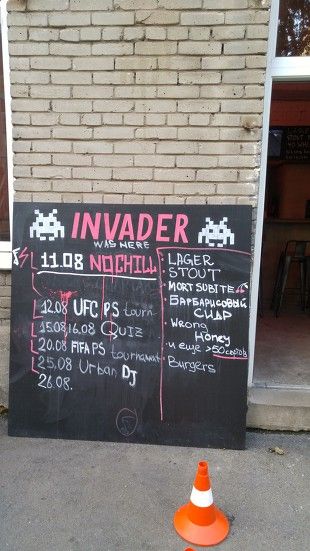 INVADER
WAS HERE
11.08 NOCHILL
12.08 UFC PS tourn
15.08 16.08 QUIZ
20.08 FIFA PS tournament
25.08 Urban DJ
26.08.
LAGER
STOUT
MORT SUBITE
БАРБАРИСОВЫЙ
СИДР
Wrong
Honey
и еще >50 сортов
Burgers